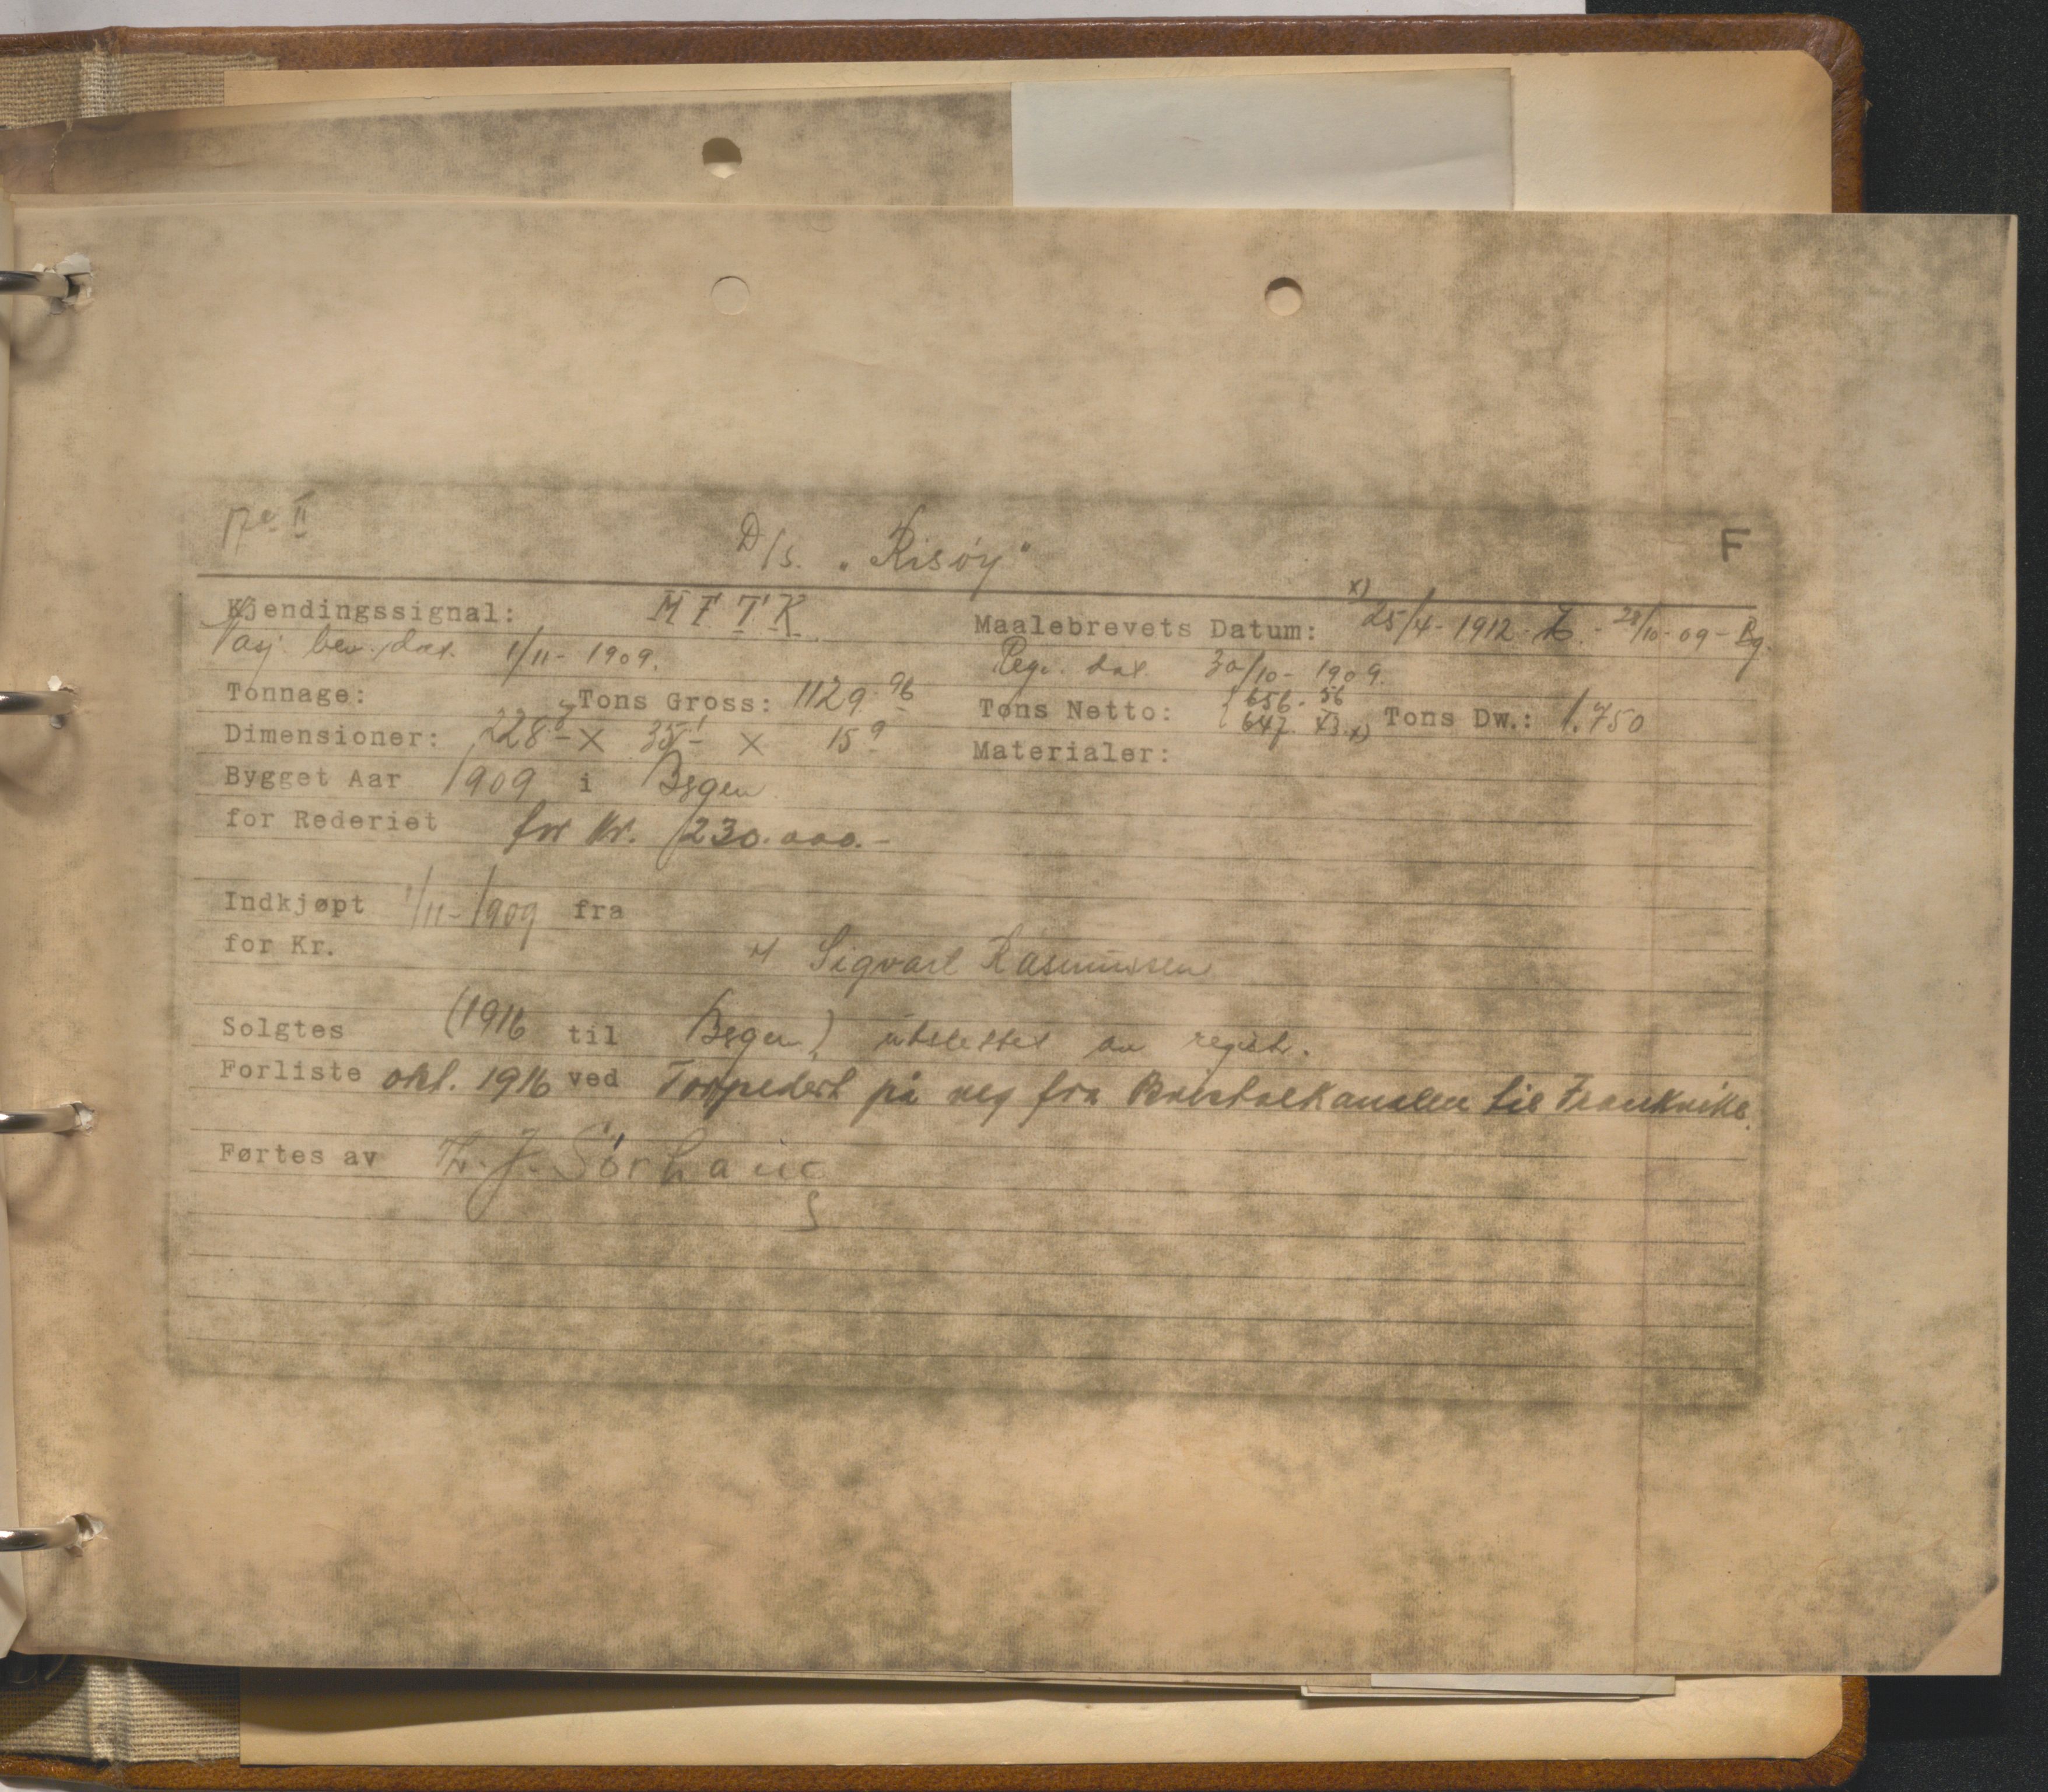 No II
D/S. „Risöy"
F
Kjendingssignal: M F T K
Maalebrevets Datum: x) 25/4-1912. - 28/10-09 - Bg.
Nasj. bev. dat. 1/11-1909.
Reg. dat 30/10-1909.
Tonnage: Tons Gross: 1129.96
Tons Netto: 656.56
647. x)
Tons Dw.: 1.750
Dimensioner: 228 x 35 x 15 9
Materialer:
Bygget Aar 1909 i Bgen.
for Rederiet for Kr. 230.000.-
Indkjøpt 1/11-1909 fra
for Kr.
Sigvart Rasmussen
Solgtes (1916 til Bgen) utslettet av regist.
Forliste okt. 1916 ved Torpedert på veg fra Bristolkanalen til Frankrike.
Førtes av Th. J. Sörhaug